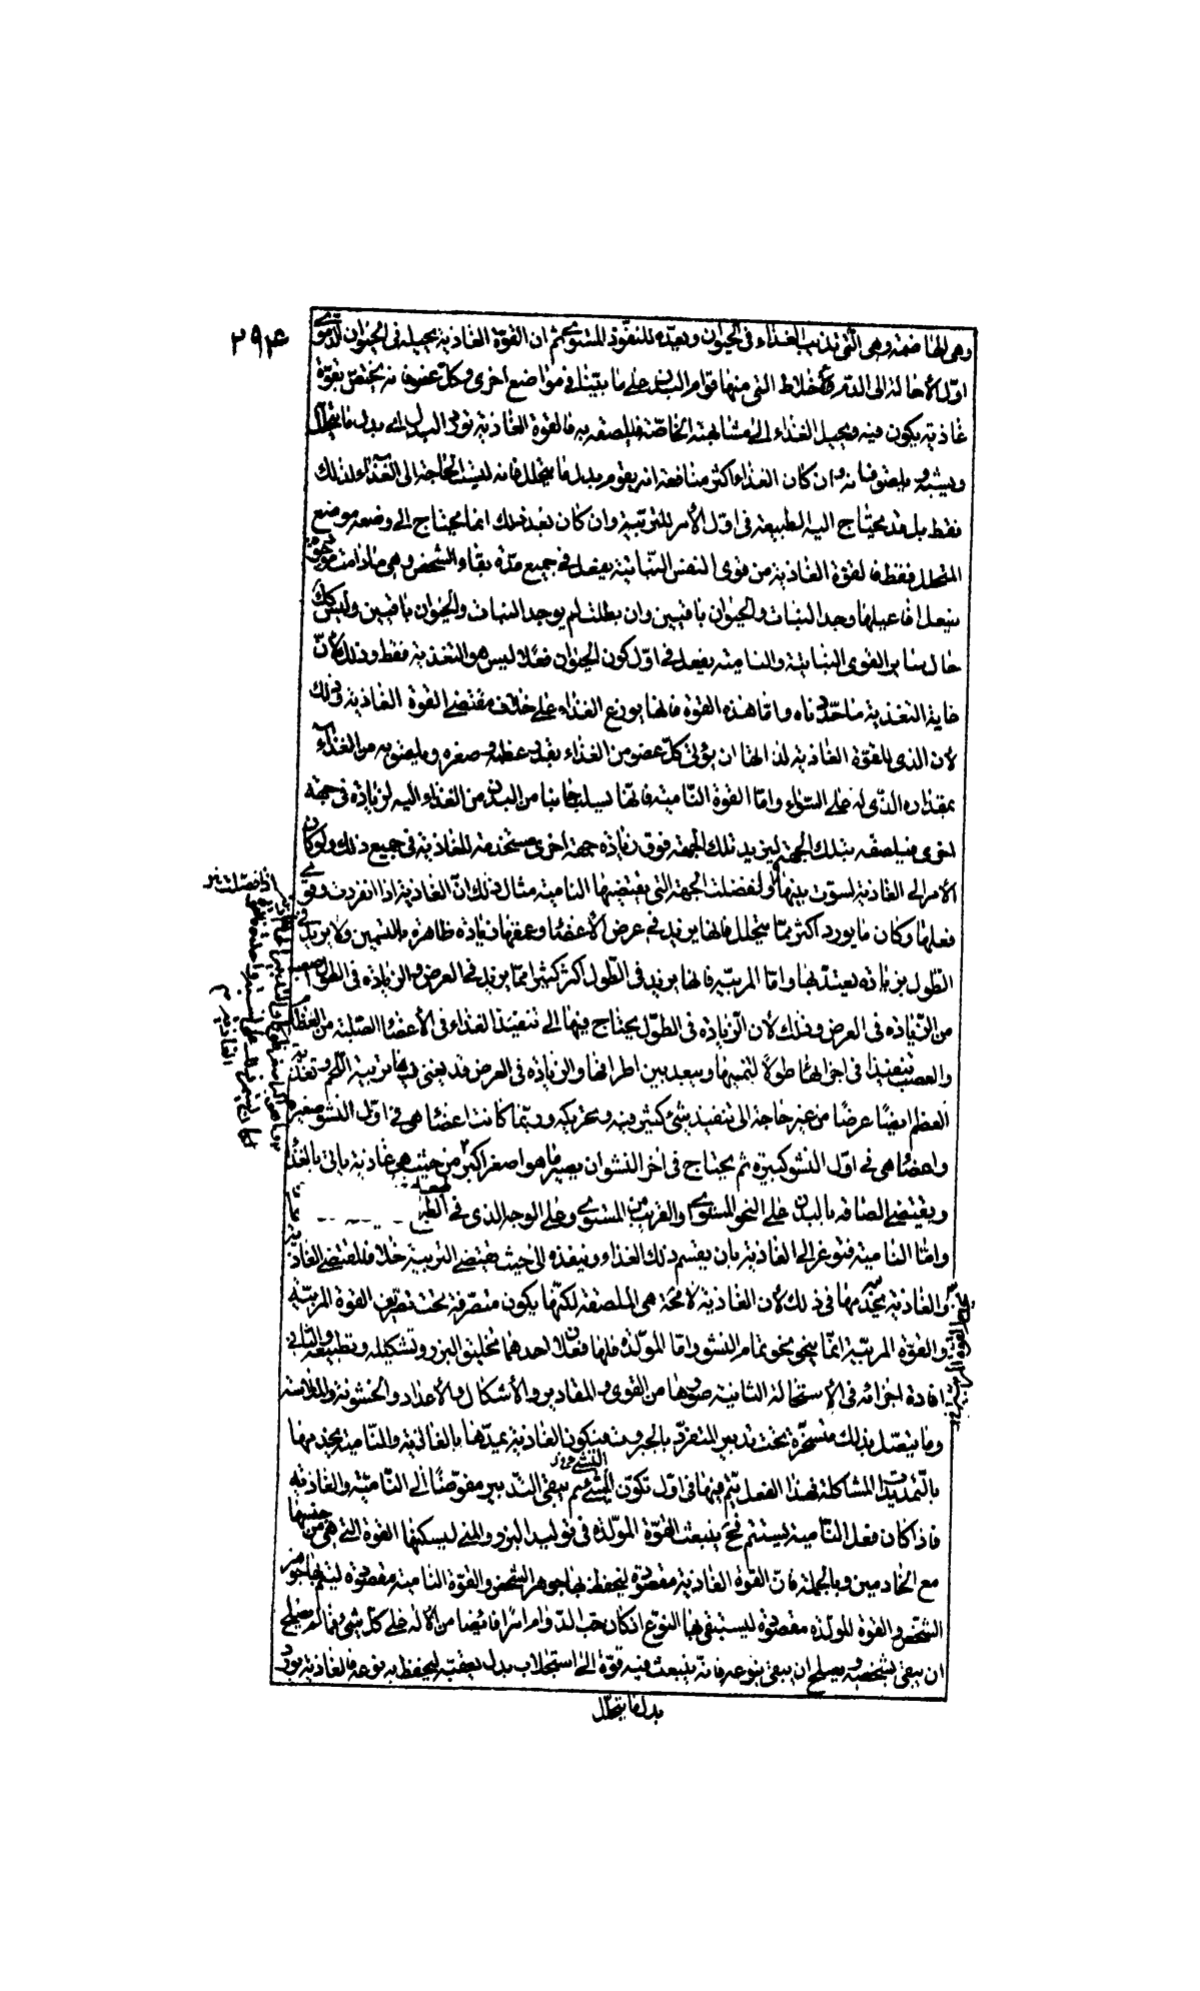 ٢٩٤
وهى الهاضمة وهى التى تذيب الغذاء فى الحيوان وتعده للنفوذ المستوى ثم ان القوة الغاذية يحيله فى الحيوان الدموى
اول الأحالة الى الدم والأخلاط التى منها قوام البدن على ما بيّنا فى مواضع اخرى وكل عضو فانه يختص بقوة
غاذية يكون فيه ويحيل الغذاء الى مشابهته الخاصّة فيلصقه به فالقوة الغاذية تورد البدل اى بدل ما يتحلل
ويشبه ويلصق فانه وان كان الغذاء اكثر منافعه انه يقوم بدل ما يتحلل فانه ليست الحاجة الى الغذاء لذلك
فقط بل قد يحتاج اليه الطبيعة فى اول الأمر للتربية وان كان بعد ذلك انما يحتاج الى وضعه موضع
المتحلل فقط فالقوة الغاذية من قوى النفس النباتية يفعل فى جميع مدّة بقاء الشخص وهى مادامت موجودة
يفعل افاعيلها وجد النبات والحيوان باقيين وان بطلت لم يوجد النبات والحيوان باقيين وليس كذلك
حال ساير القوى النباتية والنامية يفعل فى اول كون الحيوان فعلا ليس هو التغذية فقط وذلك لأنّ
غاية التغذية ما حدّدناه واما هذه القوة فانها يوزع الغذاء على خلاف مقتضى القوة الغاذية وذلك
لأن الذى للقوة الغاذية لذاتها ان يؤتى كلّ عضو من الغذاء بقدر عظمه وصغره ويلصق به من الغذاء
بمقداره الذى له على السّواء واما القوة النّامية فانها تسلب جانبا من البدن من الغذاء اليه لزيادة فى جهة
اخرى فيلصقه بتلك الجهة ليزيد تلك الجهة فوق زيادة جهة اخرى مستخدمة للغاذية فى جميع ذلك ولو كان
الأمر الى الغاذية لسوّت بينها ولفضلت الجهة التى يقتضيها النامية مثال ذلك انّ الغاذية اذا انفردت وقوى
فعلها وكان ما يورد اكثر ممّا يتحلل فانها يزيد فى عرض الأعضاء وعمقها زيادة ظاهرة بالتسمين ولا يزيد فى
الطول زيادة يعتدّ بها واما المربّية فانها يزيد فى الطول اكثر كثيرا مما يزيد فى العرض والزيادة فى الطول اصعب
من الزّيادة فى العرض وذلك لأن الزيادة فى الطول يحتاج فيها الى تنفيذ الغذاء فى الأعضاء الصّلبة من العظام
والعصب تنفيذا فى اجزائها طولا لتنميها ويبعد بين اطرافها والزيادة فى العرض قد يغنى فيها تربية اللحم وتغذية
العظم ايضا عرضا من غير حاجة الى تنفيذ شئ كثير فيه وتحريكه وربّما كانت اعضاء هى فى اول النشو صغيرة
واعضاء هى فى اول النشو كبيرة ثم يحتاج فى اخر النشو ان يصير ما هو اصغر اكبر من حيث هى غاذية ياتى بالغذاء
ويقتضى الصاقه بالبدن على النحو المستوى والقريب من المستوى وعلى الوجه الذى فى الطبع
واما النامية فتوعز الى الغاذية بان يقسم ذلك الغذاء وينفذه الى حيث يقتضى التربية خلافا لمقتضى الغاذية
والغاذية يخدمها فى ذلك لأن الغاذية لامحة هى الملصقة لكنّها يكون متصرفة تحت تصريف القوة المربّية
والقوة المربّية انّما ينحو نحو تمام النشو واما المولّدة فلها فعلان احدهما تخليق البزر وتشكيله وتطبيعه والثانى
افادة اجزائه فى الاستحالة الثانية صورها من القوى والمقادير والأشكال والأعداد والخشونة والملاسة
وما يتصل بذلك متسخّرة تحت تدبير المتفرّد بالجبروت فيكون الغاذية يمدّها بالغاذية والنّامية يخدمها
بالتمديدات المشاكلة فهذا الفعل يتم فيها فى اول تكوّن الشئ ثم يبقى التّدبير مفوّضا الى النّامية والغاذية
فاذا كان فعل النّامية يستتم فح ينبعث القوّة المولّدة فى توليد البزر والمنى ليسكنها القوة التى هى من جنسها
مع الخادمين وبالجملة فان القوة الغاذية مقصودة ليحفظ بها جوهر الشخص والقوّة النامية مقصودة ليتم بها جوهر
الشخص والقوة المولّدة مقصودة ليستبقى بها النوع اذ كان حب الدوام امرا فايضا من الاله على كل شئ فما لم يصلح
ان يبقى بشخصه ويصلح ان يبقى بنوعه فانه ينبعث فيه قوة الى استجلاب بدل يعقبه ليحفظ به نوعه فالغاذية يورد
بدل ما يتحلل